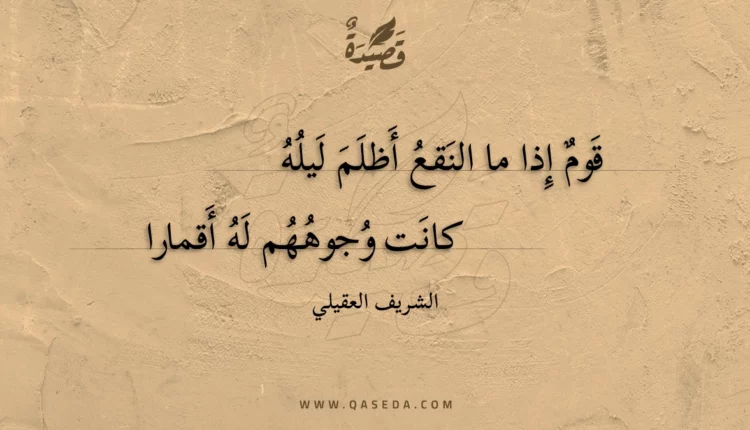 قَصِيدَةٌ
قَومٌ إِذا ما النَقعُ أَظلَمَ لَيلُهُ
كانَت وُجوهُهُم لَهُ أَقمارا
الشريف العقيلي
WWW.QASEDA.COM